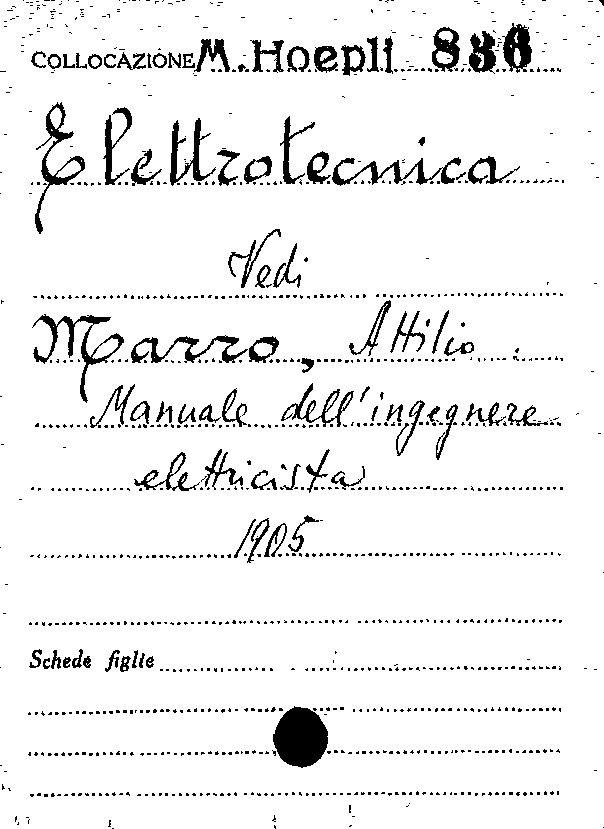 COLLOCAZIONE M. Hoepli 836
Elettrotecnica
Vedi
Marro, Attilio.
Manuale dell'ingegnere
elettricista
1905
Schede figlie